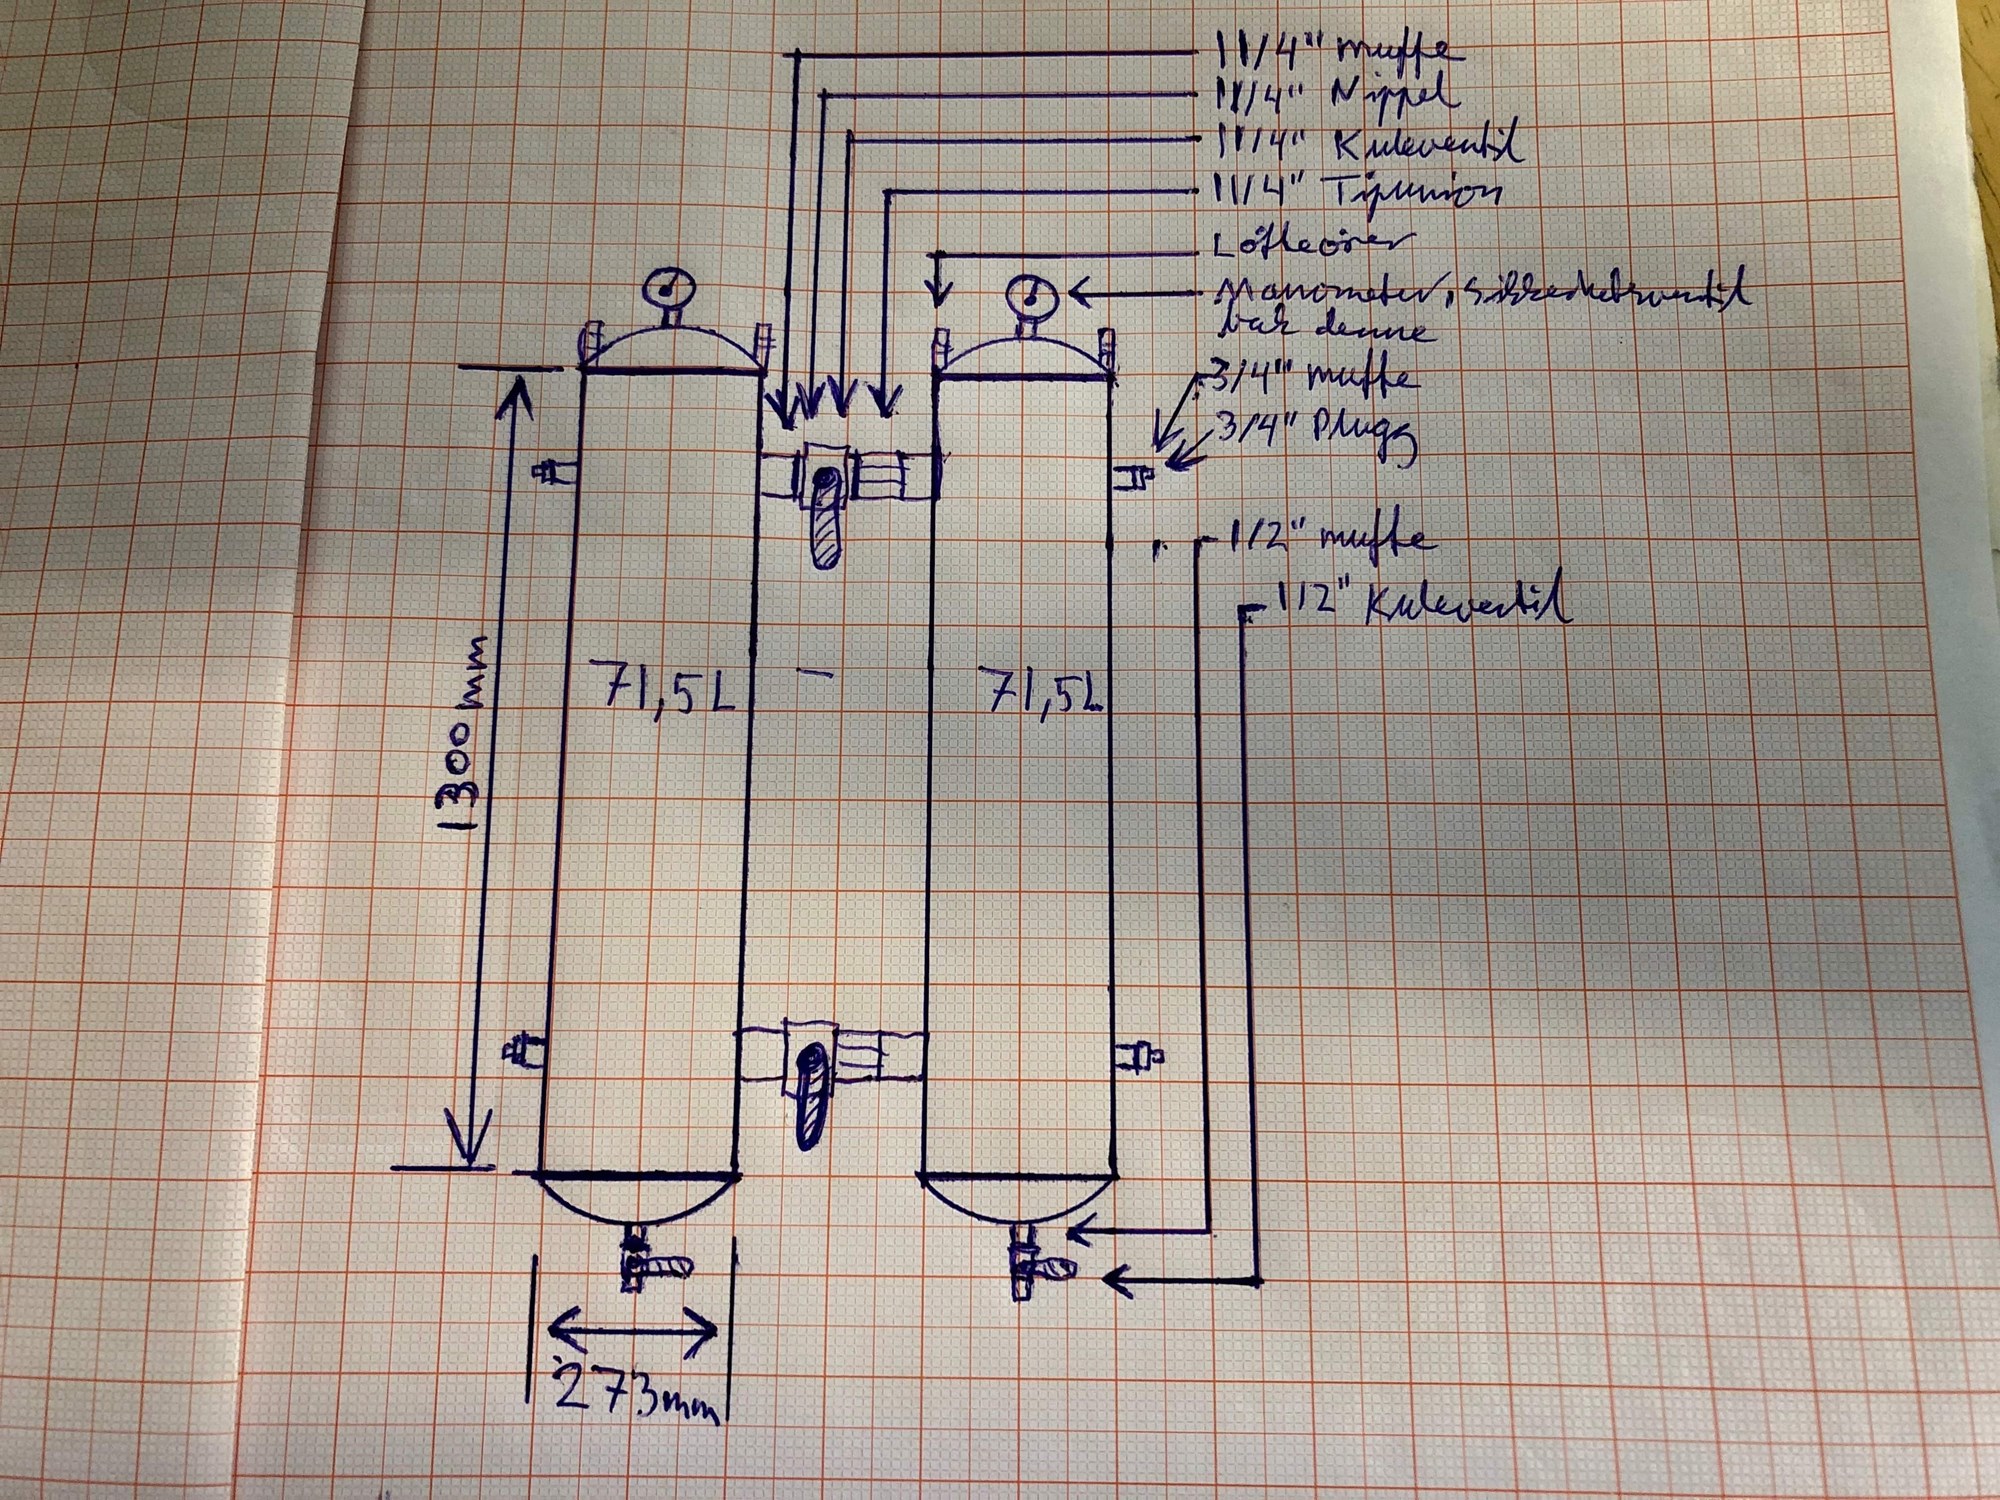 1 1/4" muffe
1 1/4" Nippel
1 1/4" Kuleventil
1 1/4" Tipunion
Lófteórer
Manometer, Sikkerhetsventil
bak denne
3/4" muffe
3/4" Plugg
1/2" muffe
1/2" Kuleventil
1300 mm
71,5 L
71,5 L
273mm